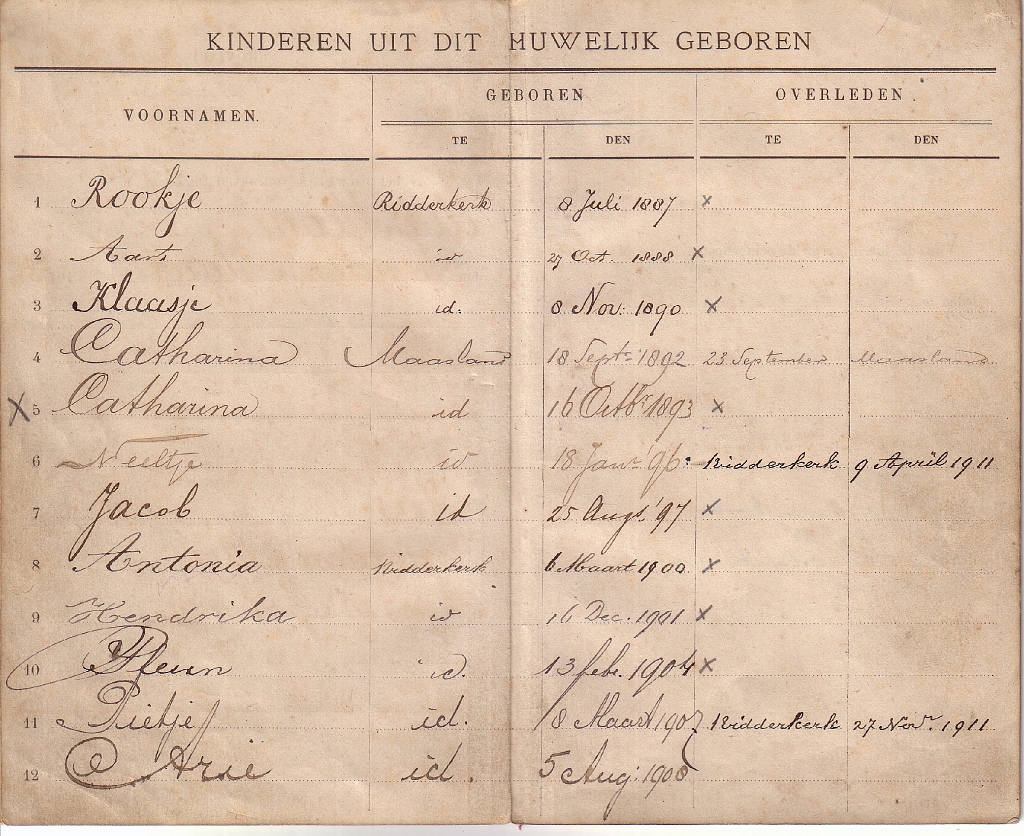 KINDEREN UIT DIT HUWELIJK GEBOREN
VOORNAMEN. GEBOREN OVERLEDEN
TE DEN TE DEN
1 Rookje Ridderkerk 8 Juli 1887 x
2 Aart id 27 Oct. 1888 x
3 Klaasje id. 8 Nov. 1890 x
4 Catharina Maasland 18 Sept. 1892 23 September Maasland
x 5 Catharina id 16 Octbr 1893 x
6 Neeltje id 18 Janr '96 Ridderkerk 9 April 1911
7 Jacob id 25 Augs '97 x
8 Antonia Ridderkerk 6 Maart 1900 x
9 Hendrika id 16 Dec. 1901 x
10 Pleun id. 13 febr. 1904 x
11 Pietje id. 8 Maart 1907 Ridderkerk 27 Nov. 1911
12 Arie id. 5 Aug. 1908